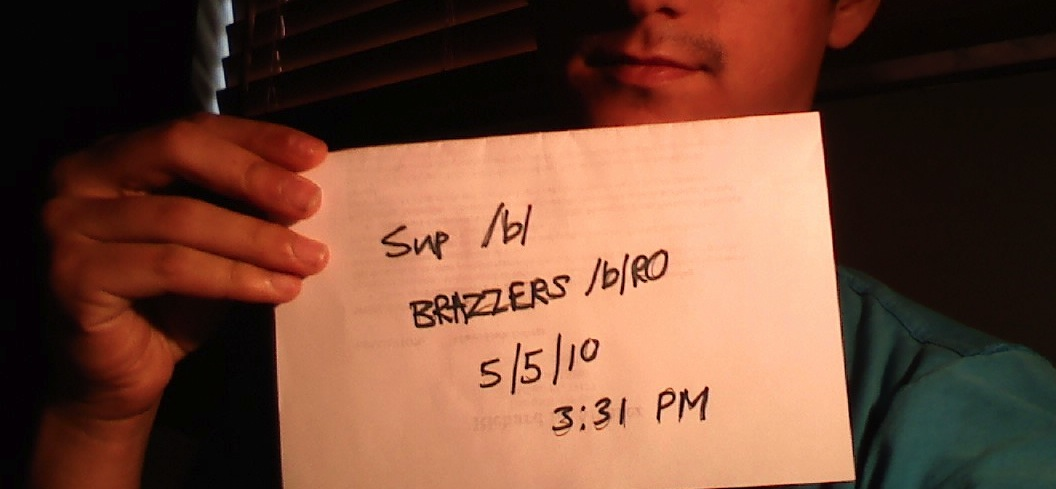 Sup /b/
BRAZZERS /b/RO
5/5/10
3:31 PM